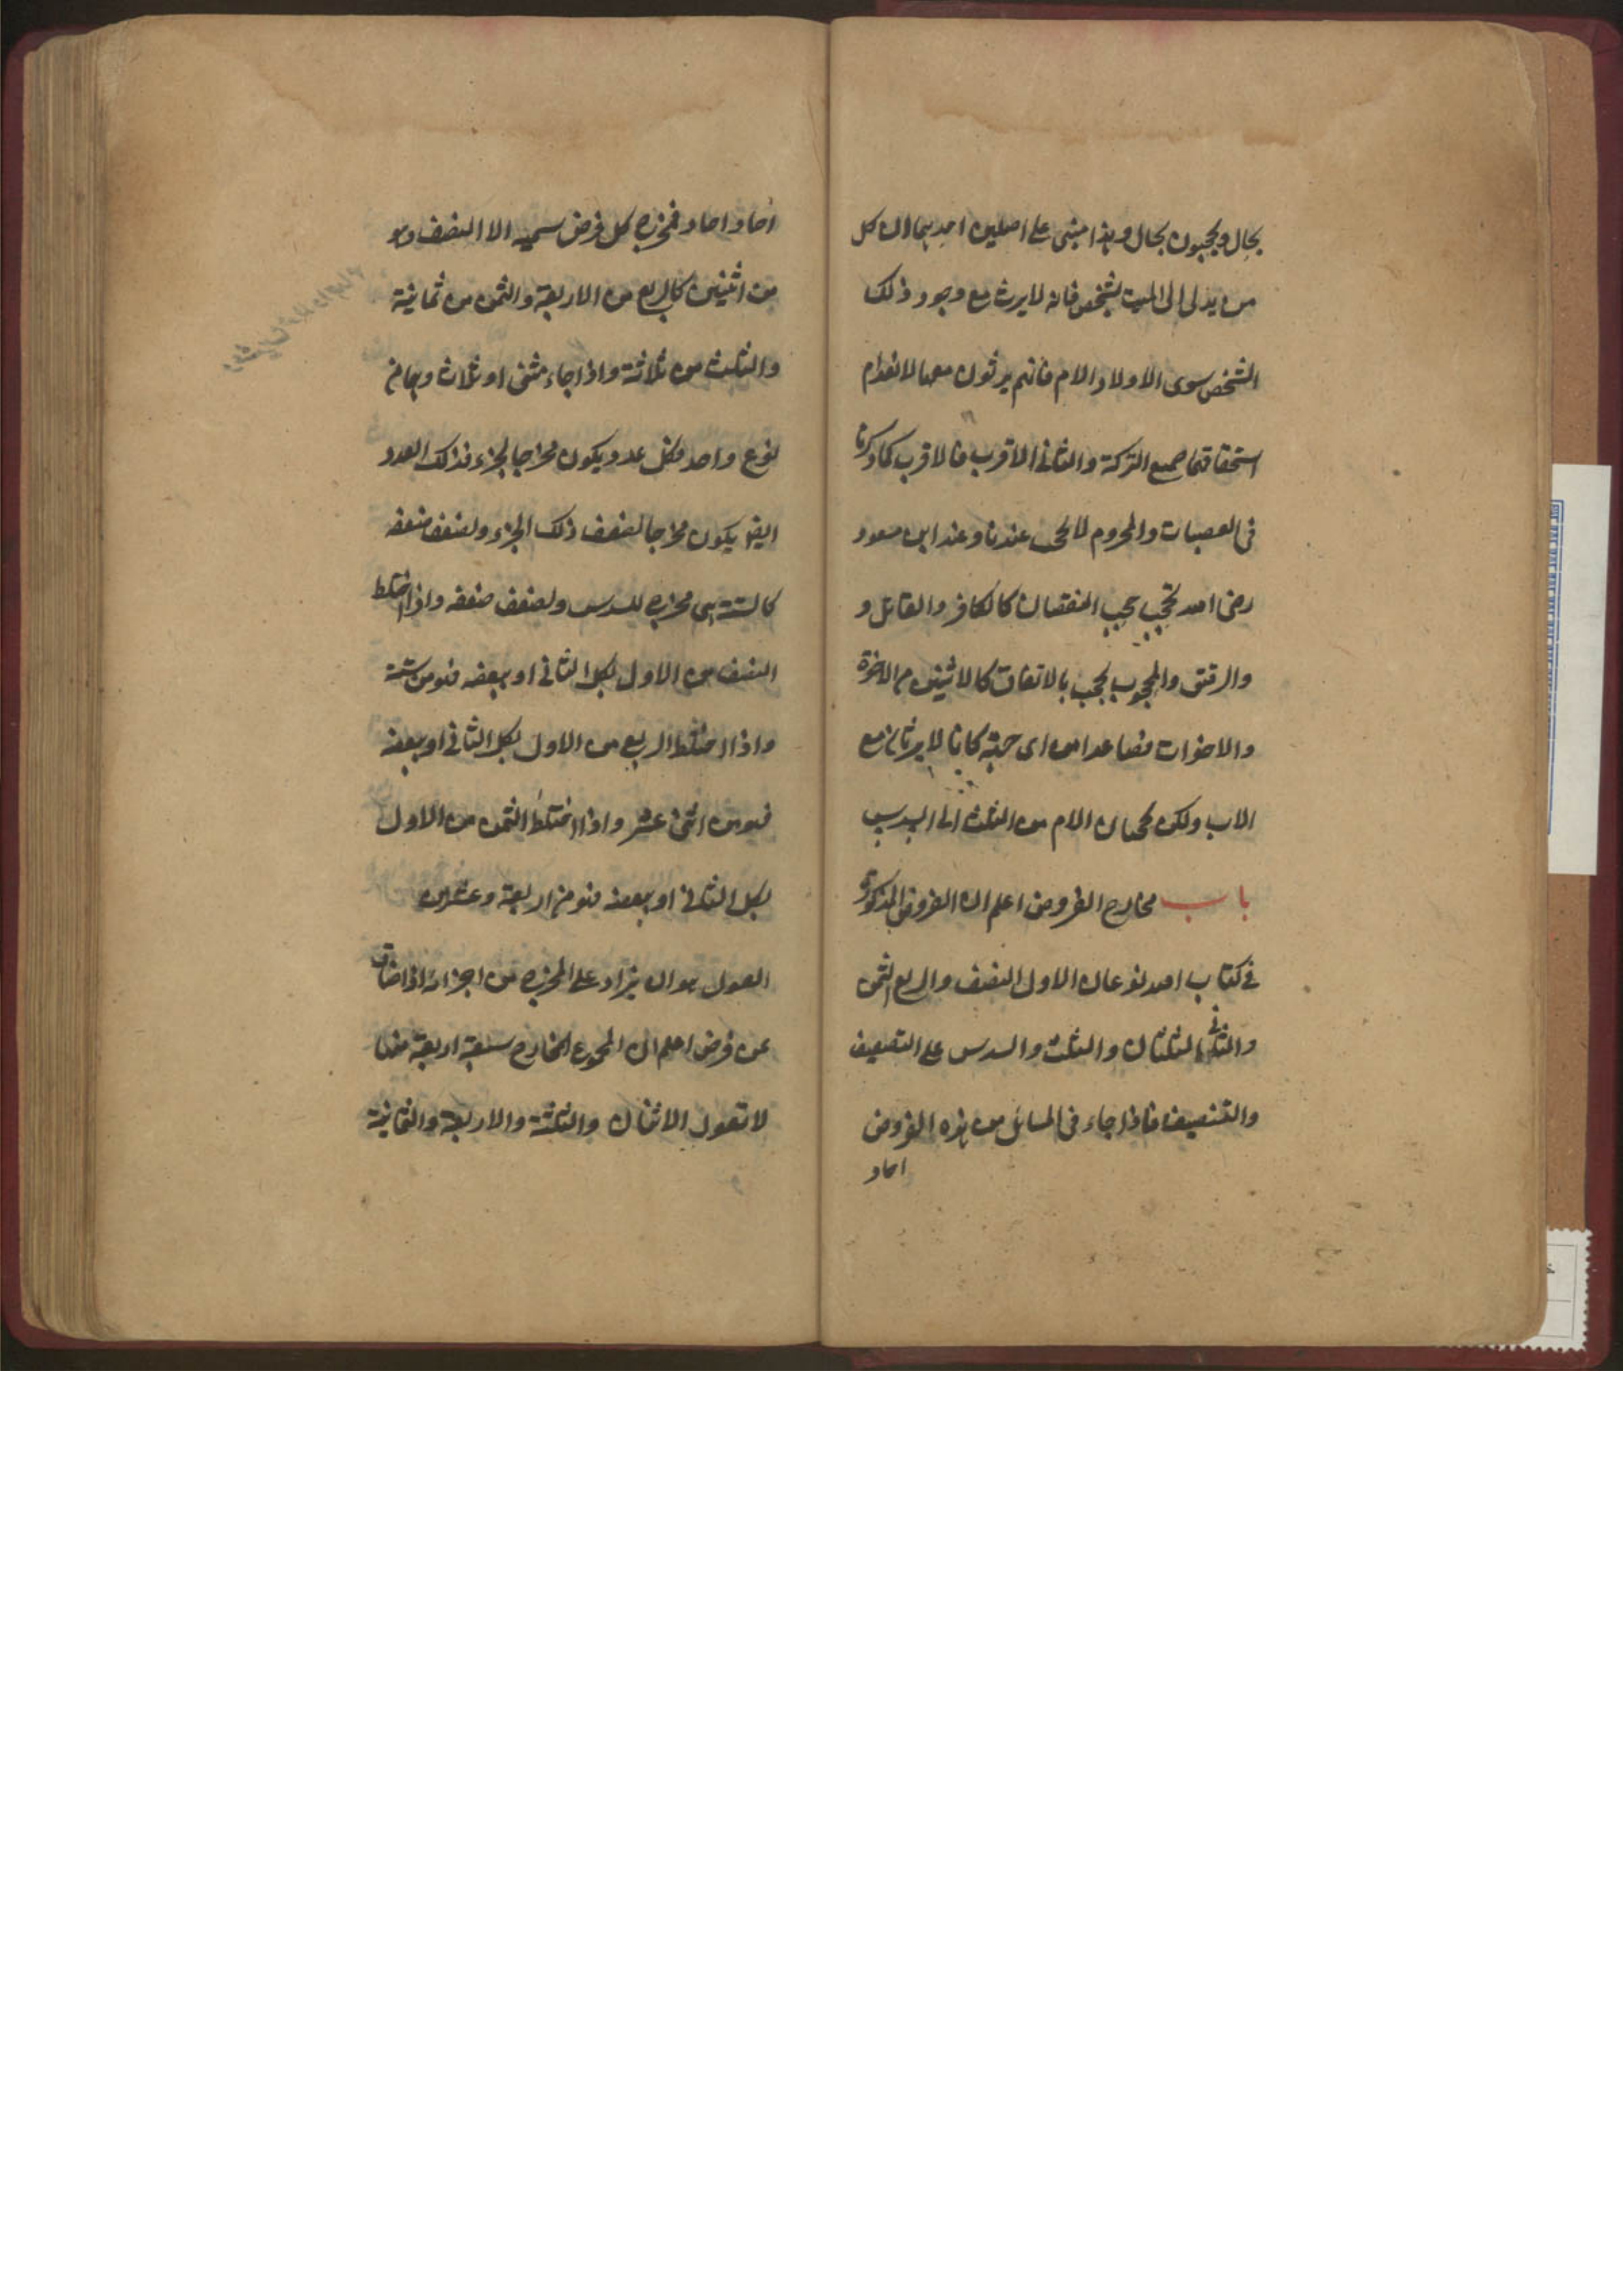 بحال ويحجبون بحال وهذا مبنى على اصلين احدهما ان كل
من يدلى الى الميت بشخص فانه لا يرث مع وجود ذلك
الشخص سوى الاولاد الام فانهم يرثون معها لانعدام
استحقاقها جميع التركة والثانى الاقرب فالاقرب كما ذكرنا
فى العصبات والمحروم لا يحجب عندنا وعند ابن مسعود
رضى الله يحجب حجب النقصان كالكافر والقاتل و
والرقيق والمحجوب يحجب بالاتفاق كالاثنين من الاخوة
والاخوات فصاعدا من اى جهة كانا لا يرثان مع
الاب ولكن يحجبان الام من الثلث الى السدس
باب مخارج الفروض اعلم ان الفروض المذكورة
فى كتاب الله نوعان الاول النصف والربع الثمن
والثانى الثلثان والثلث والسدس على التضعيف
والتنصيف فاذا جاء فى المسائل من هذه الفروض
احاد
احاد احاد فمخرج كل فرض سميه الا النصف وهو
من اثنين كالربع من الاربعة والثمن من ثمانية
والثلث من ثلاثة واذا جاء مثنى او ثلاث وهما من
نوع واحد فكل عدد يكون مخرجا لجزء فذلك العدد
ايضا يكون مخرجا لضعف ذلك الجزء ولضعف ضعفه
كالستة هى مخرج للسدس ولضعف ضعفه واذا اختلط
النصف من الاول بكل الثانى او ببعضه فهو من ستة
واذا اختلط الربع من الاول بكل الثانى او ببعضه
فهو من اثنى عشر واذا اختلط الثمن من الاول
بكل الثانى او ببعضه فهو من اربعة وعشرين
العول هو ان يزاد على المخرج من اجزائه اذا ضاق
عن فرض اعلم ان المجموع المخارج سبعة اربعة منها
لا تعول الاثنان والثلثة والاربعة والثمانية